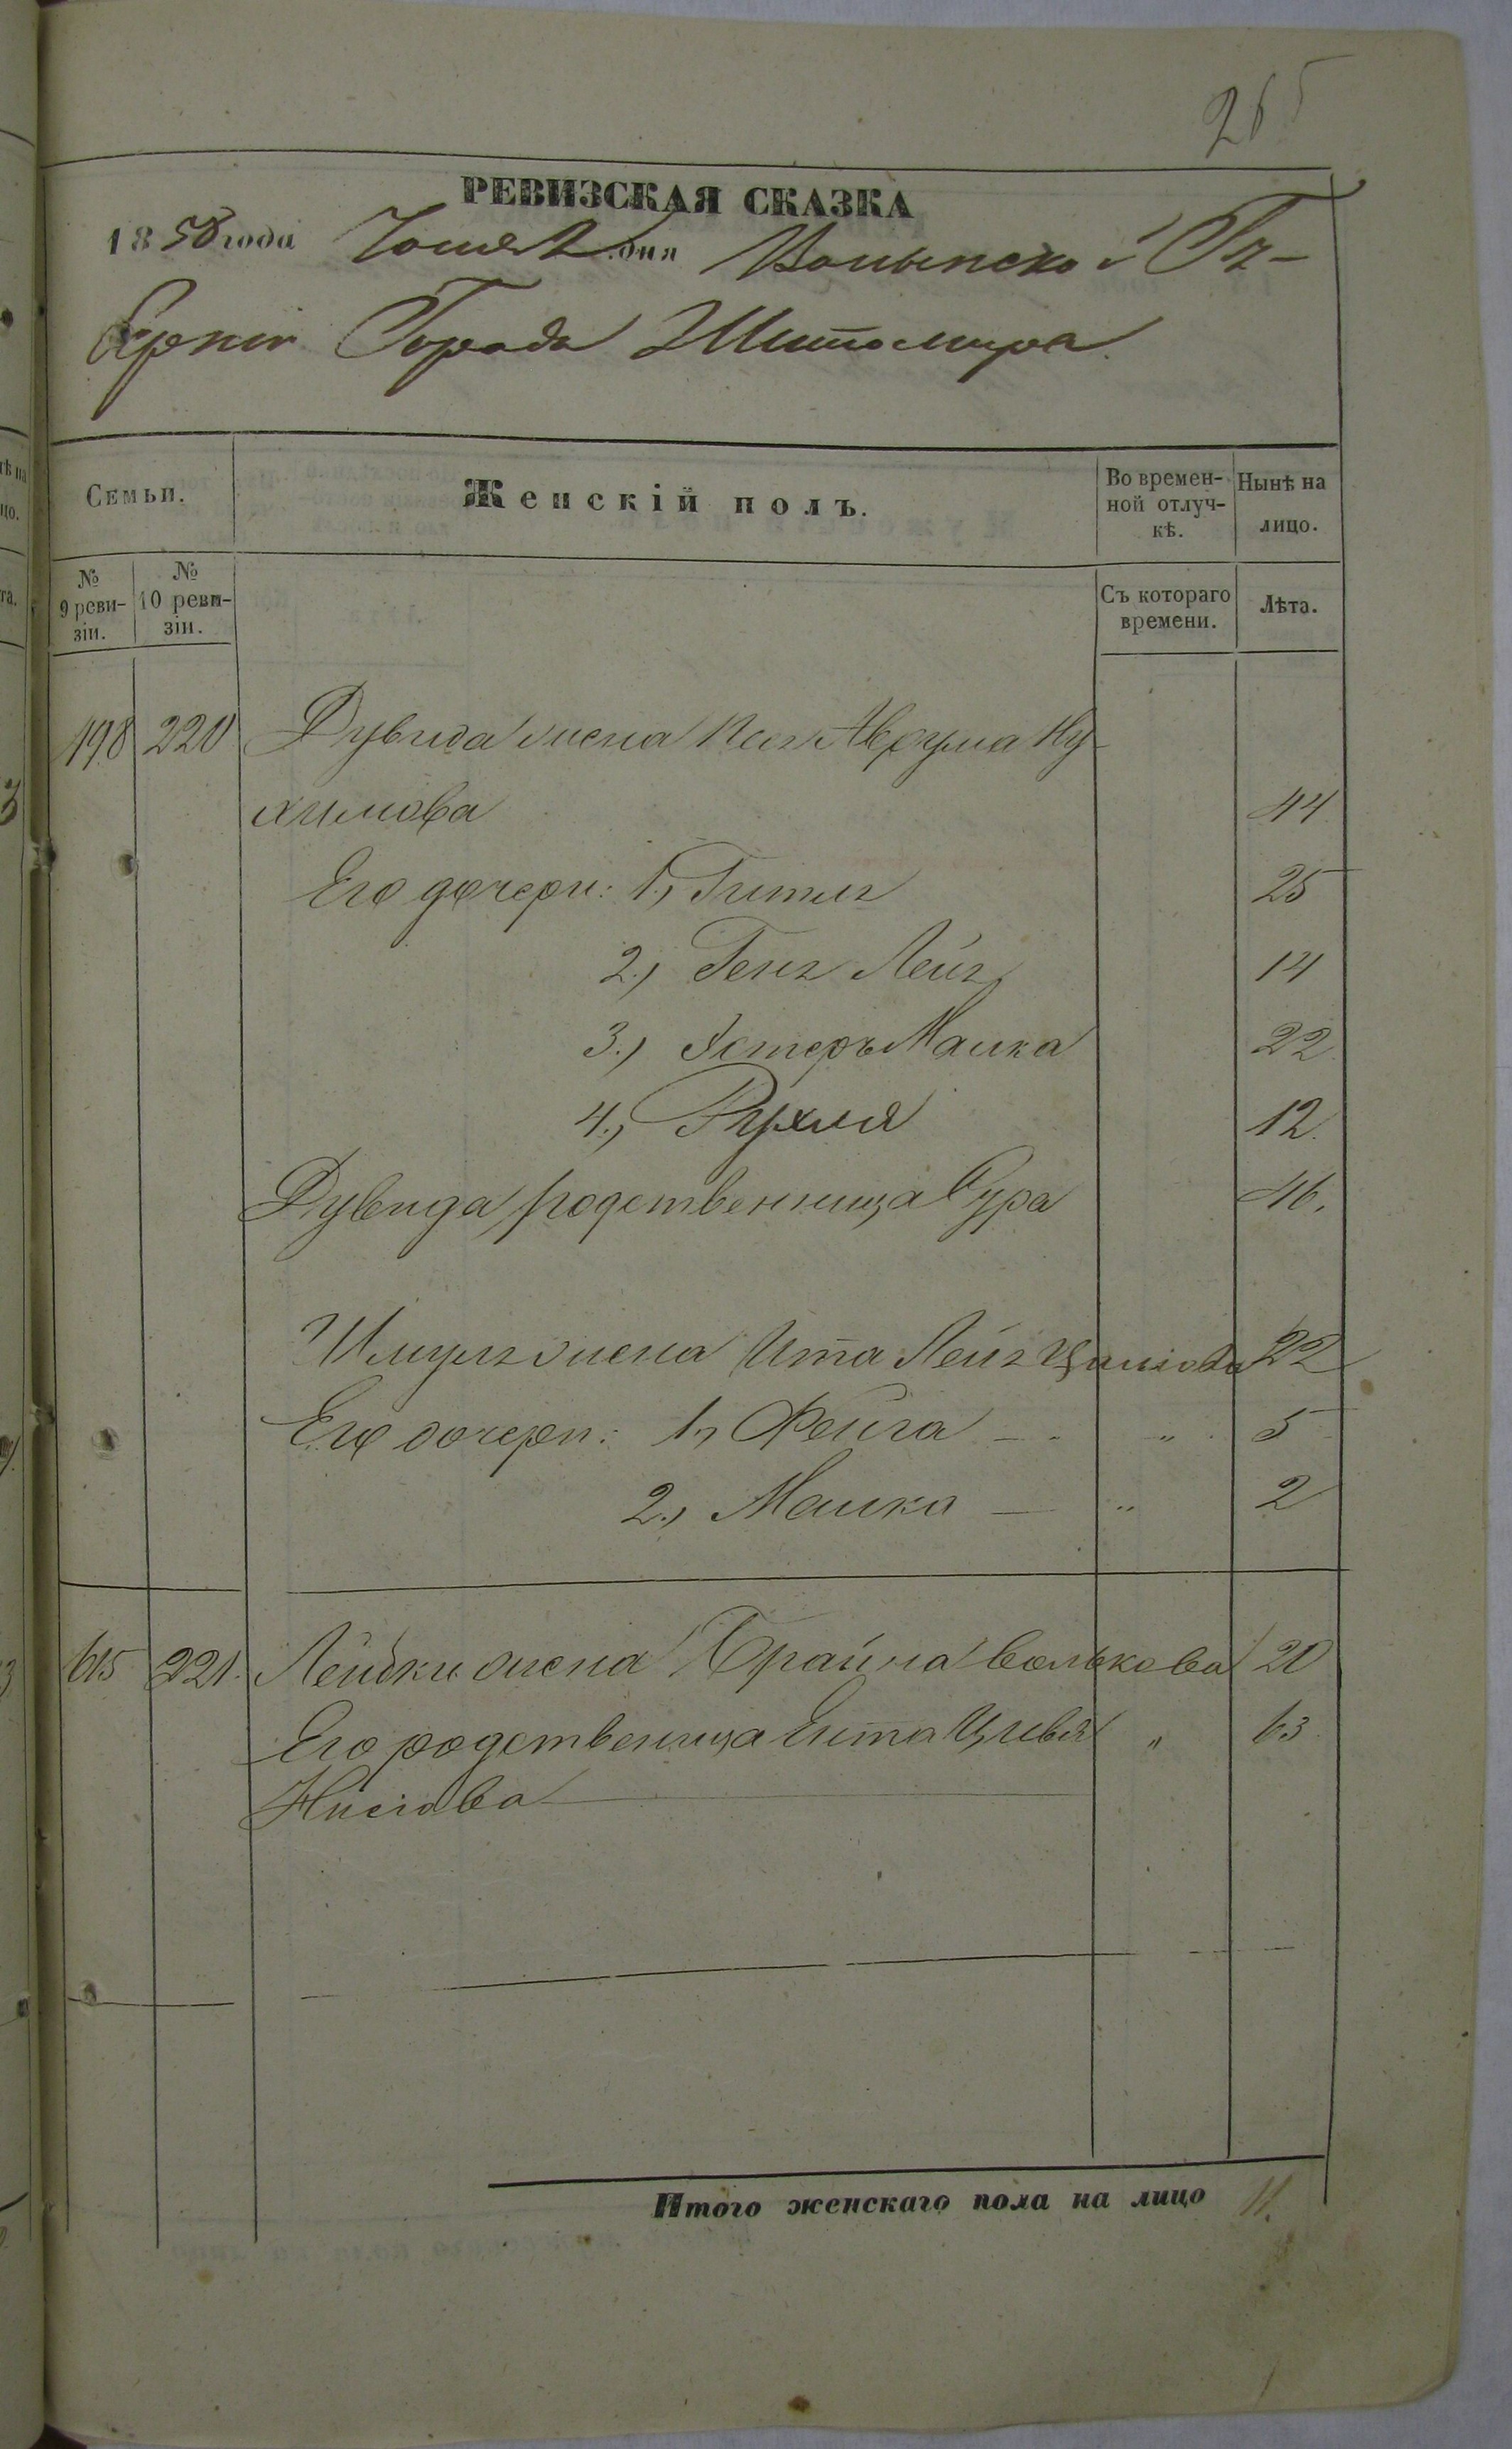 265
РЕВИЗСКАЯ СКАЗКА
1858 года дня Волынской Гу-
берніи Города Житомира
Семьи.
Женскій полъ.
Во времен-
ной отлуч-
кѣ.
Нынѣ на
лицо.
№
9 реви-
зіи.
№
10 реви-
зіи.
Съ котораго
времени.
Лѣта.
198 220 Дувида жена Аврума Ну-
химова 44
Его дочери: 1, Гитля 25
2, Геня Лея 14
3., Эстеръ Малка 22
4., Рухля 12.
Дувида родственница Сура 46.
Шмуля жена Ита Лея 22
Его дочери: 1, Фейга - „ 5
2., Малка — „ 2
615 221. Лейбки жена Брайна Волькова 20
Его родственица Ента Цивья „ 63
Нисіова
Итого женскаго пола на лицо 11.